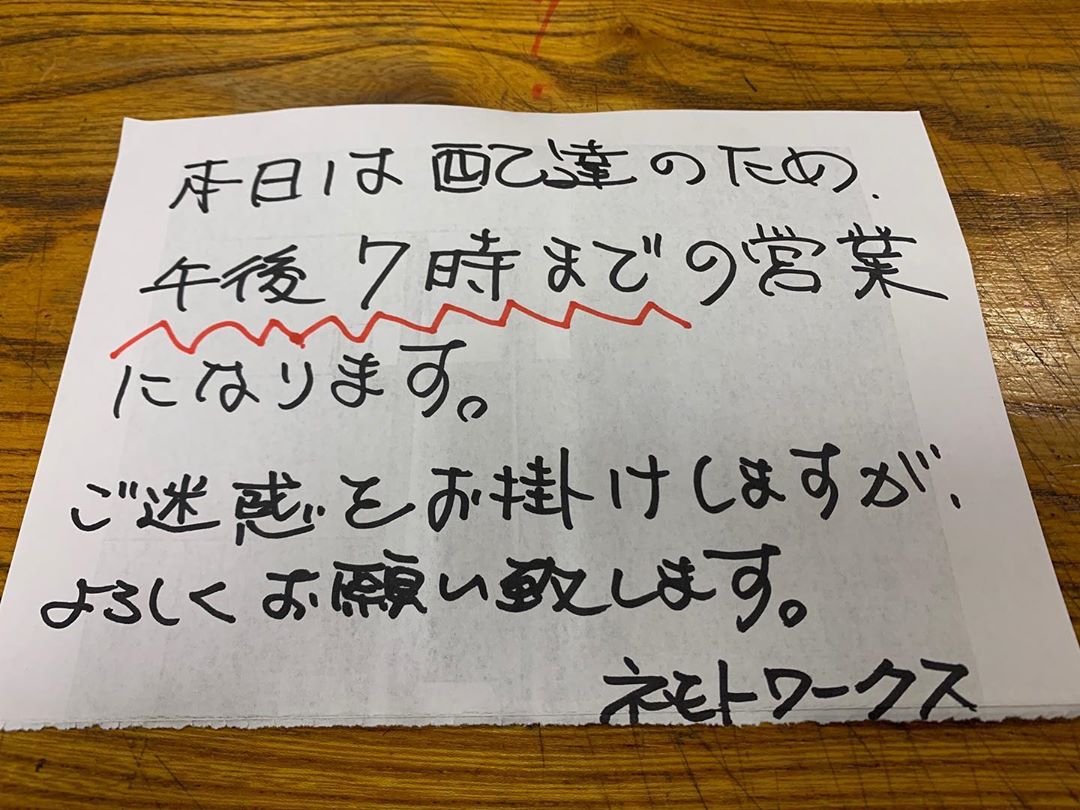 本日は配達のため、
午後7時までの営業
になります。
ご迷惑をお掛けしますが、
よろしくお願い致します。
ネモトワークス